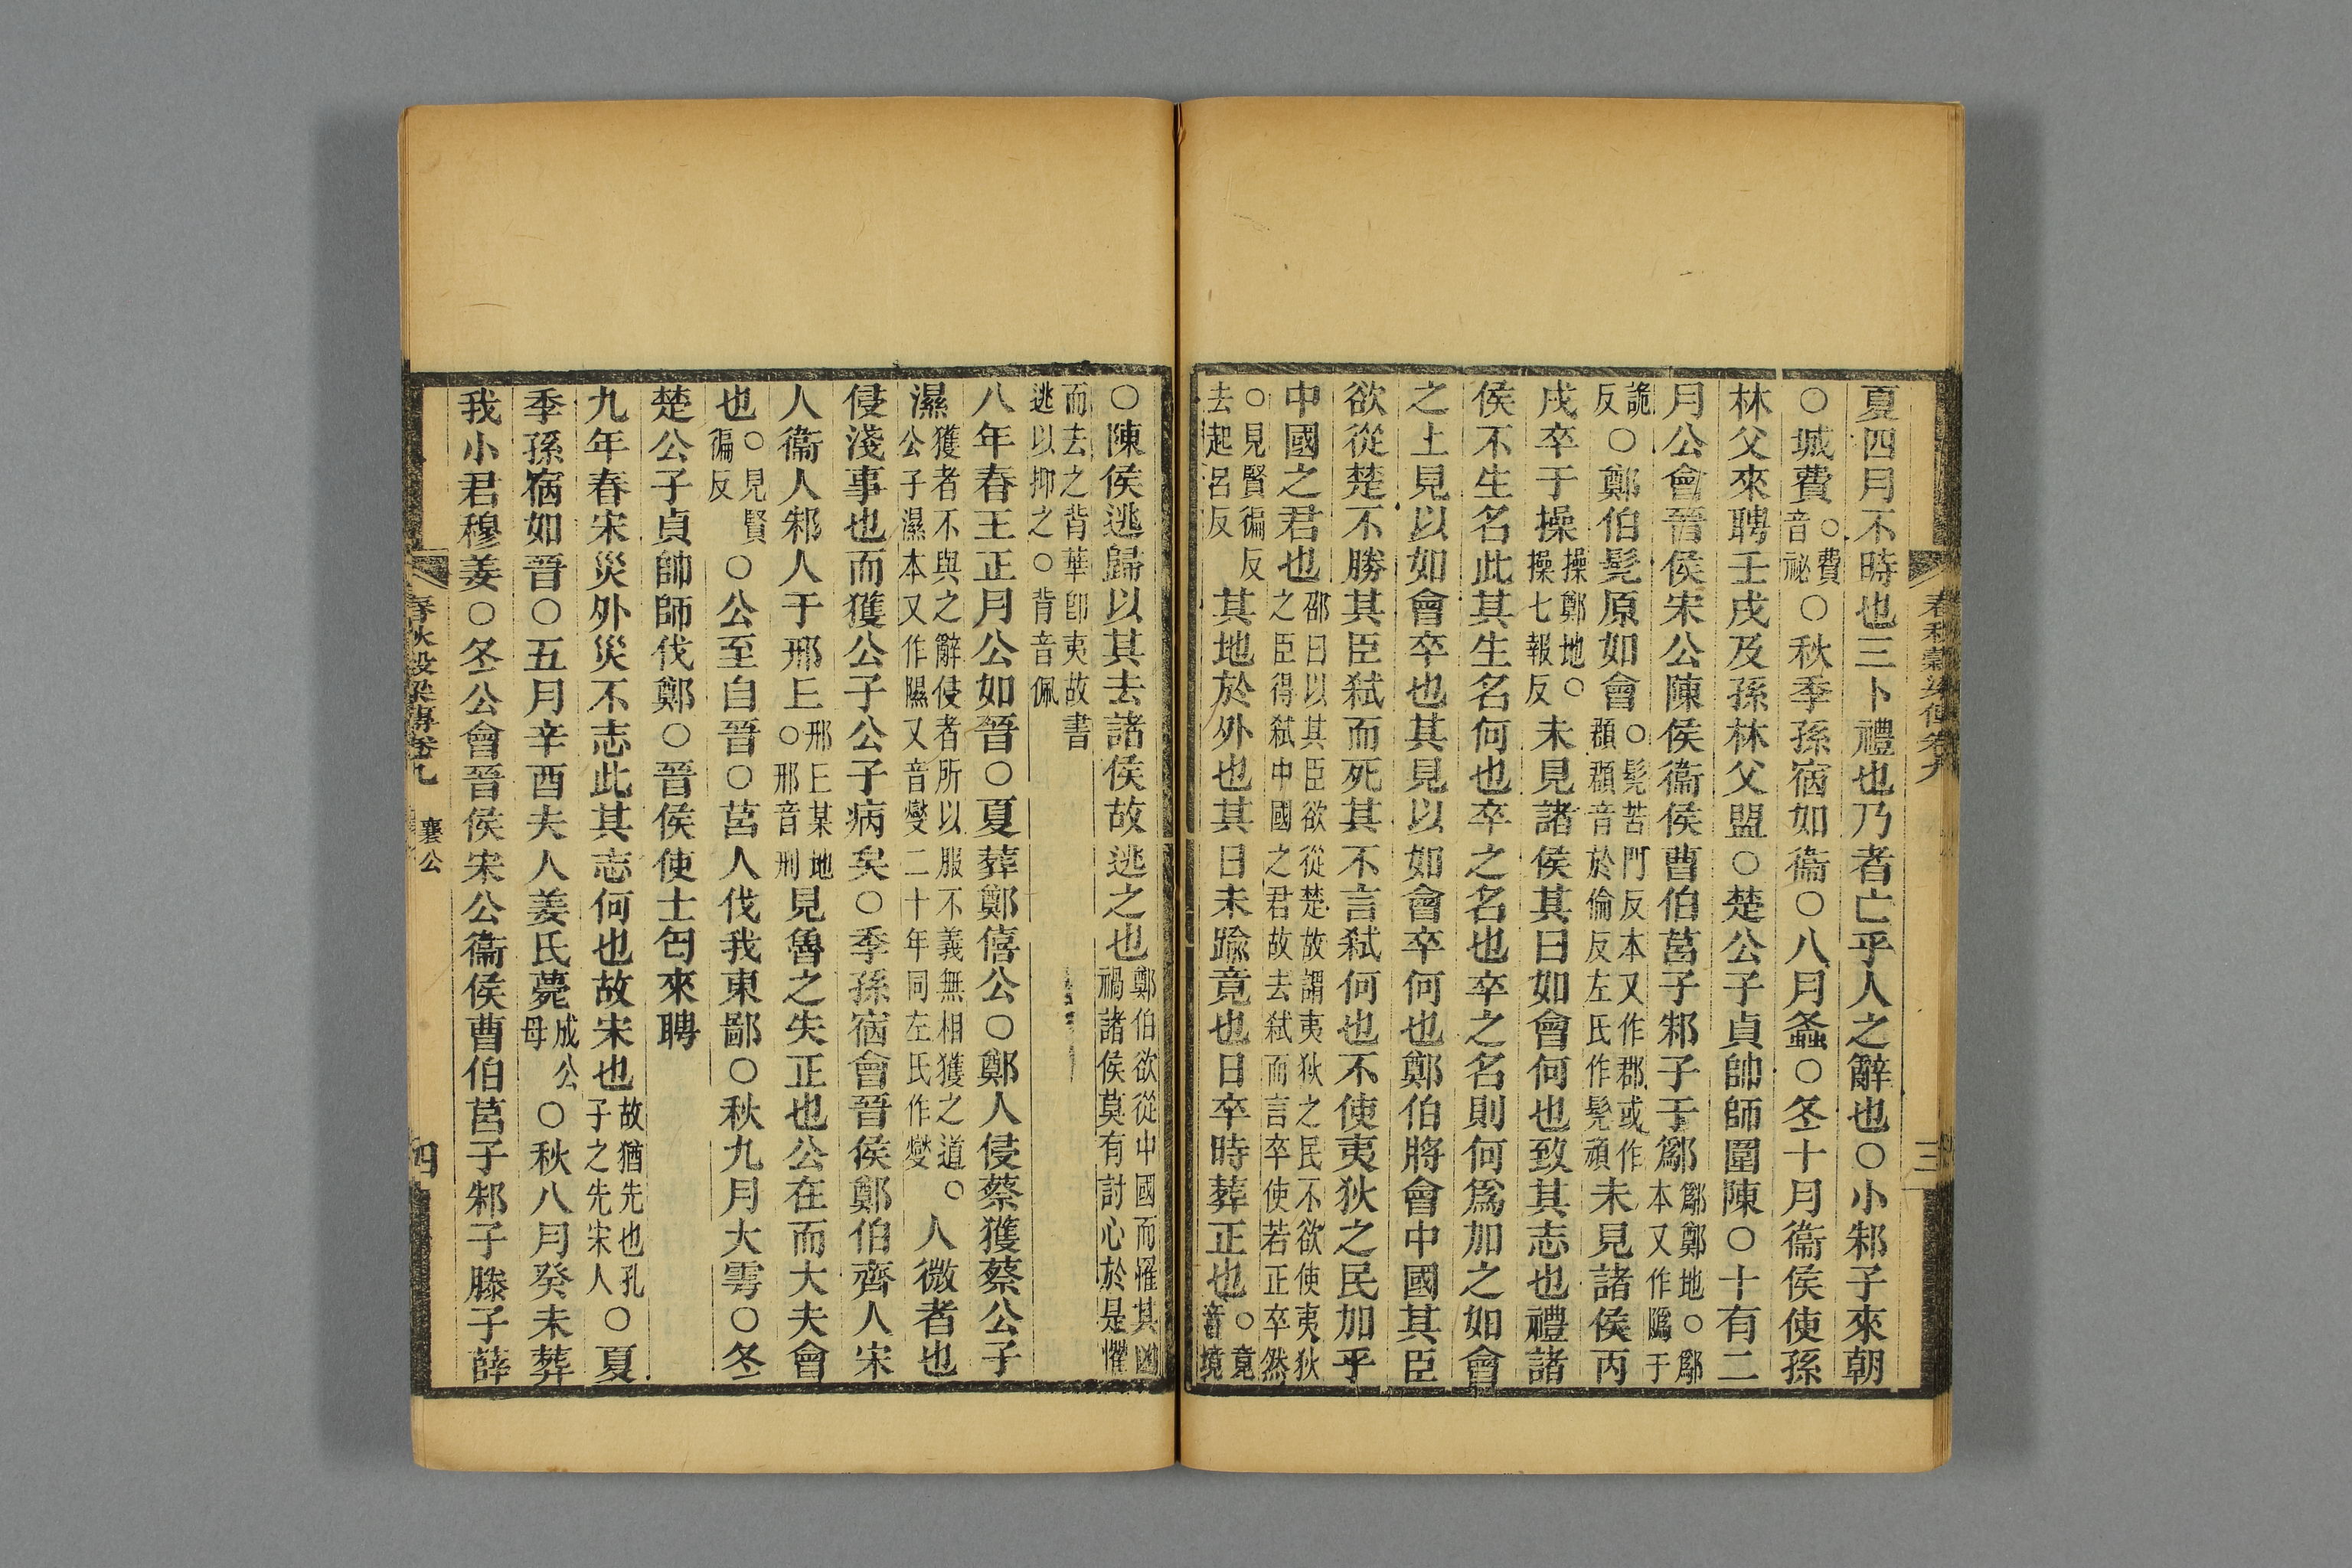 春秋穀梁傳卷九
三
夏四月不時也三卜禮也乃者亡乎人之辭也○小邾子來朝
○城費○費音祕○秋季孫宿如衞○八月螽○冬十月衞侯使孫
林父來聘壬戌及孫林父盟○楚公子貞帥師圍陳○十有二
月公會晉侯宋公陳侯衞侯曹伯莒子邾子于鄬鄬鄭地○鄬本又作隝于
詭反○鄭伯髡原如會○髡苦門反本又作郡或作頵頵音於倫反左氏作髡頑未見諸侯丙
戌卒于操操鄭地○操七報反未見諸侯其曰如會何也致其志也禮諸
侯不生名此其生名何也卒之名也卒之名則何爲加之如會
之上見以如會卒也其見以如會卒何也鄭伯將會中國其臣
欲從楚不勝其臣弒而死其不言弒何也不使夷狄之民加乎
中國之君也邵曰以其臣欲從楚故謂夷狄之民不欲使夷狄之臣得弒中國之君故去弒而言卒使若正卒然
○見賢徧反去起呂反其地於外也其日未踰竟也日卒時葬正也○竟音境
○陳侯逃歸以其去諸侯故逃之也鄭伯欲從中國而罹其凶禍諸侯莫有討心於是懼
而去之背華卽夷故書逃以抑之○背音佩
八年春王正月公如晉○夏葬鄭僖公○鄭人侵蔡獲蔡公子
濕獲者不與之辭侵者所以服不義無相獲之道○公子濕本又作隰又音燮二十年同左氏作燮人微者也
侵淺事也而獲公子公子病矣○季孫宿會晉侯鄭伯齊人宋
人衞人邾人于邢丘邢丘某地○邢音刑見魯之失正也公在而大夫會
也○見賢徧反○公至自晉○莒人伐我東鄙○秋九月大雩○冬
楚公子貞帥師伐鄭○晉侯使士匄來聘
九年春宋災外災不志此其志何也故宋也故猶先也孔子之先宋人○夏
季孫宿如晉○五月辛酉夫人姜氏薨成公母○秋八月癸未葬
我小君穆姜○冬公會晉侯宋公衞侯曹伯莒子邾子滕子薛
春秋穀梁傳卷九
襄公
四